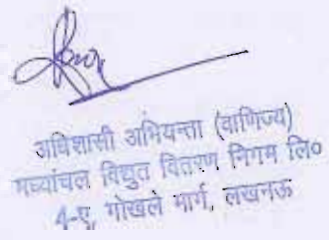 अधिशासी अभियन्ता (वाणिज्य)
मध्यांचल विद्युत वितरण निगम लि०
4-ए, गोखले मार्ग, लखनऊ